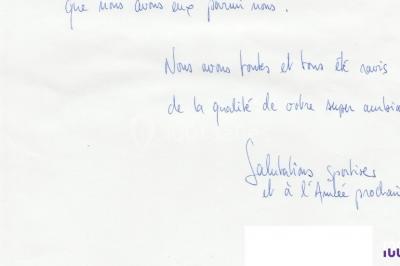 que nous avons eux parmi nous.
Nous avons toutes et tous été ravis
de la qualité de votre super ambia
Salutations sportives
et à l'Année prochai